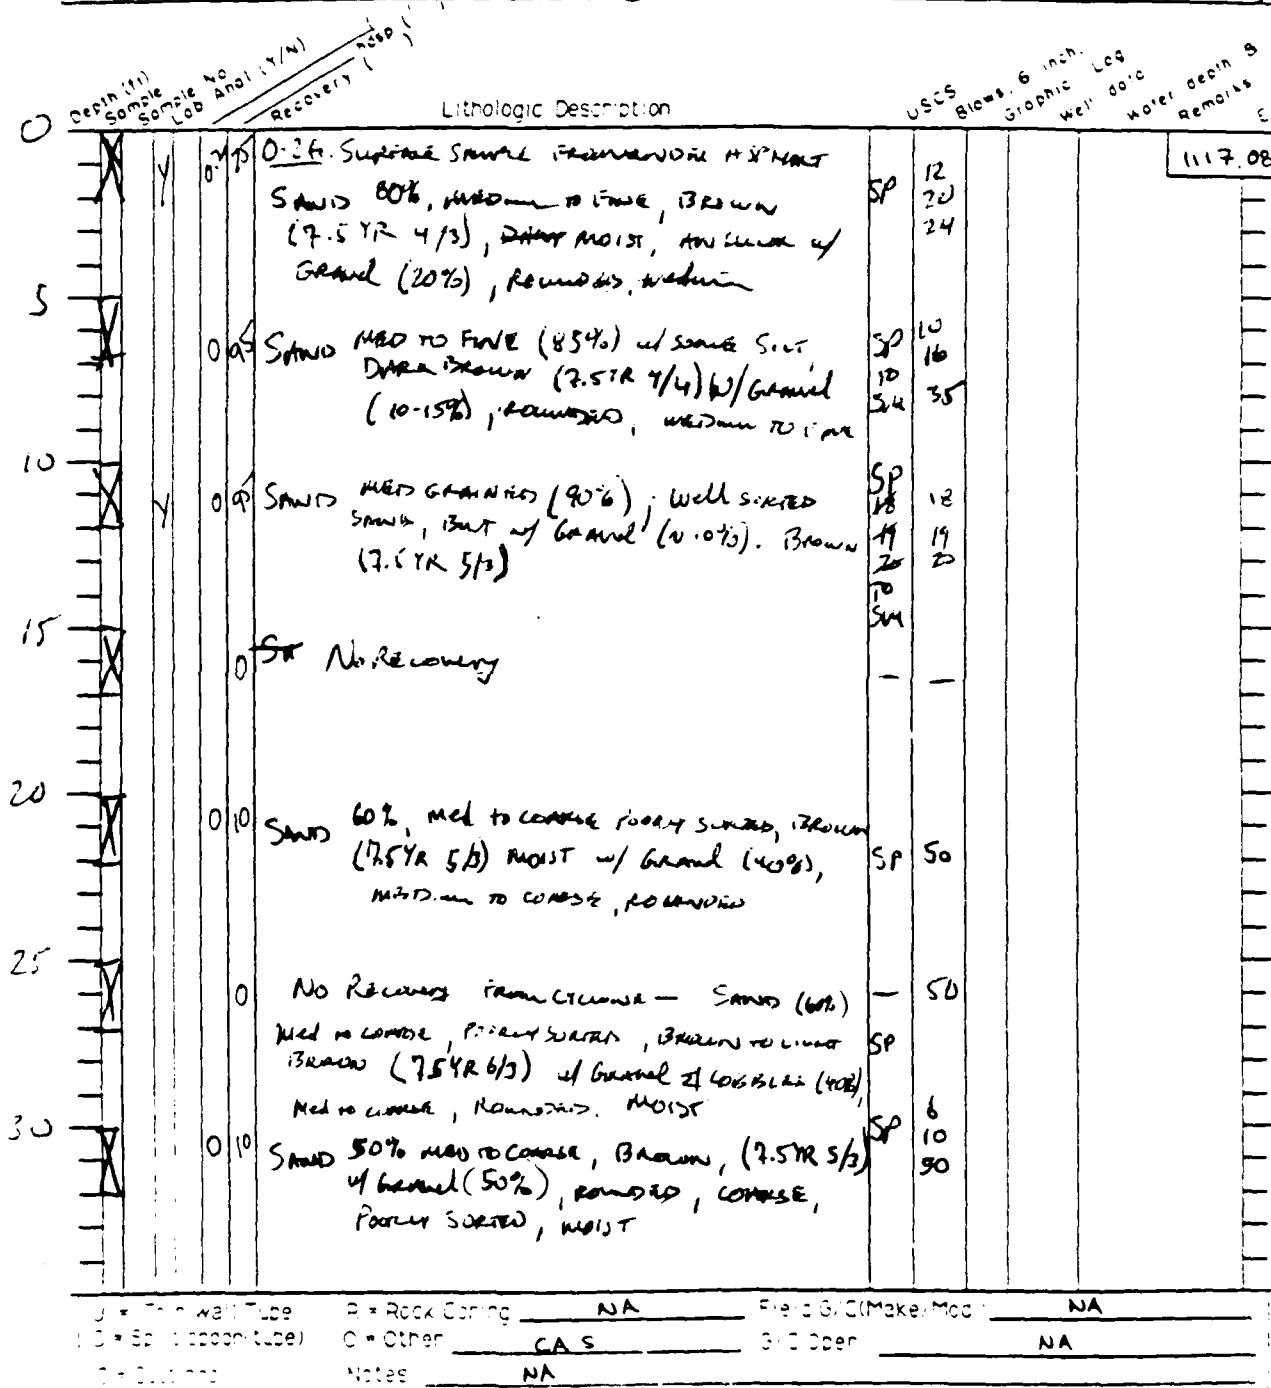 Depth (ft)
Sample
Sample No
Lab Anal (Y/N)
Recovery (
Lithologic Description
USCS
Blows, 6 inch.
Graphic Log
Well data
Water depth &
Remarks
0
0-2ft. Surface Sample From Asphalt
1117.08
Y
Sand 80%, medium to fine, Brown
SP
12
20
24
(7.5 YR 4/3), moist, Angular w/
Gravel (20%), Rounded, medium
5
0
Sand Med to fine (85%) w/ some silt,
SP
10
16
Dark Brown (7.5YR 4/4) w/ Gravel
to
SM
35
(10-15%), rounded, medium to fine
10
Y
0
Sand med grained (90%), well sorted
SP
18
18
sand, but w/ gravel (~10%). Brown
19
19
(7.5 YR 5/3)
20
20
to
SM
15
0
No Recovery
-
-
20
0
10
Sand 60%, med to coarse poorly sorted, Brown
(7.5YR 5/3) moist w/ Gravel (40%),
SP
50
medium to coarse, rounded
25
0
No Recovery from cyclone — Sand (60%)
-
50
Med to coarse, poorly sorted, Brown to light
SP
Brown (7.5YR 6/3) w/ Gravel & cobbles (40%),
Med to coarse, Rounded. Moist
30
SP
6
10
50
0
10
Sand 50% med to coarse, Brown, (7.5YR 5/3)
w/ Gravel (50%), rounded, coarse,
Poorly Sorted, moist
= Thin Wall Tube
R = Rock Coring
NA
Field G/C(Make/Mod
NA
= Split spoon(tube)
O = Other
CAS
G/C Oper
NA
Notes
NA